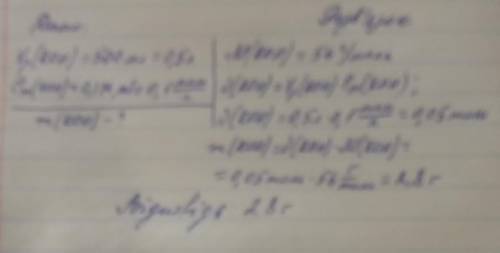 Дано:
V(KOH) = 500 мл = 0,5 л
Cм(KOH) = 0,1 М, або 0,1 моль/л
m(KOH) - ?
M(KOH) = 56 г/моль
ν(KOH) = V(KOH) · Cм(KOH);
ν(KOH) = 0,5 л · 0,1 моль/л = 0,05 моль
m(KOH) = ν(KOH) · M(KOH) =
= 0,05 моль · 56 г/моль = 2,8 г
Відповідь 2,8 г